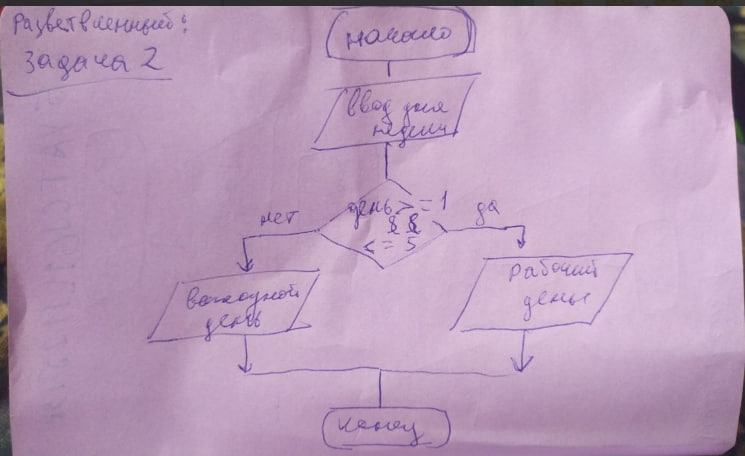 Разветвленный:
Задача 2
Начало
Ввод дня
недели
день > = 1
&&
< = 5
нет
да
Выходной
день
Рабочий
день
Конец